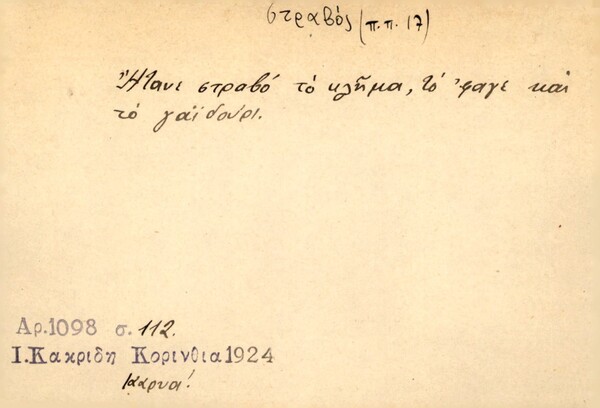 στραβός (π.π. 17)
Ἤτανε στραβό τὸ κλῆμα, τό 'φαγε καὶ
τὸ γαϊδούρι.
Αρ.1098 σ. 112.
Ι.Κακριδη Κορινθια 1924